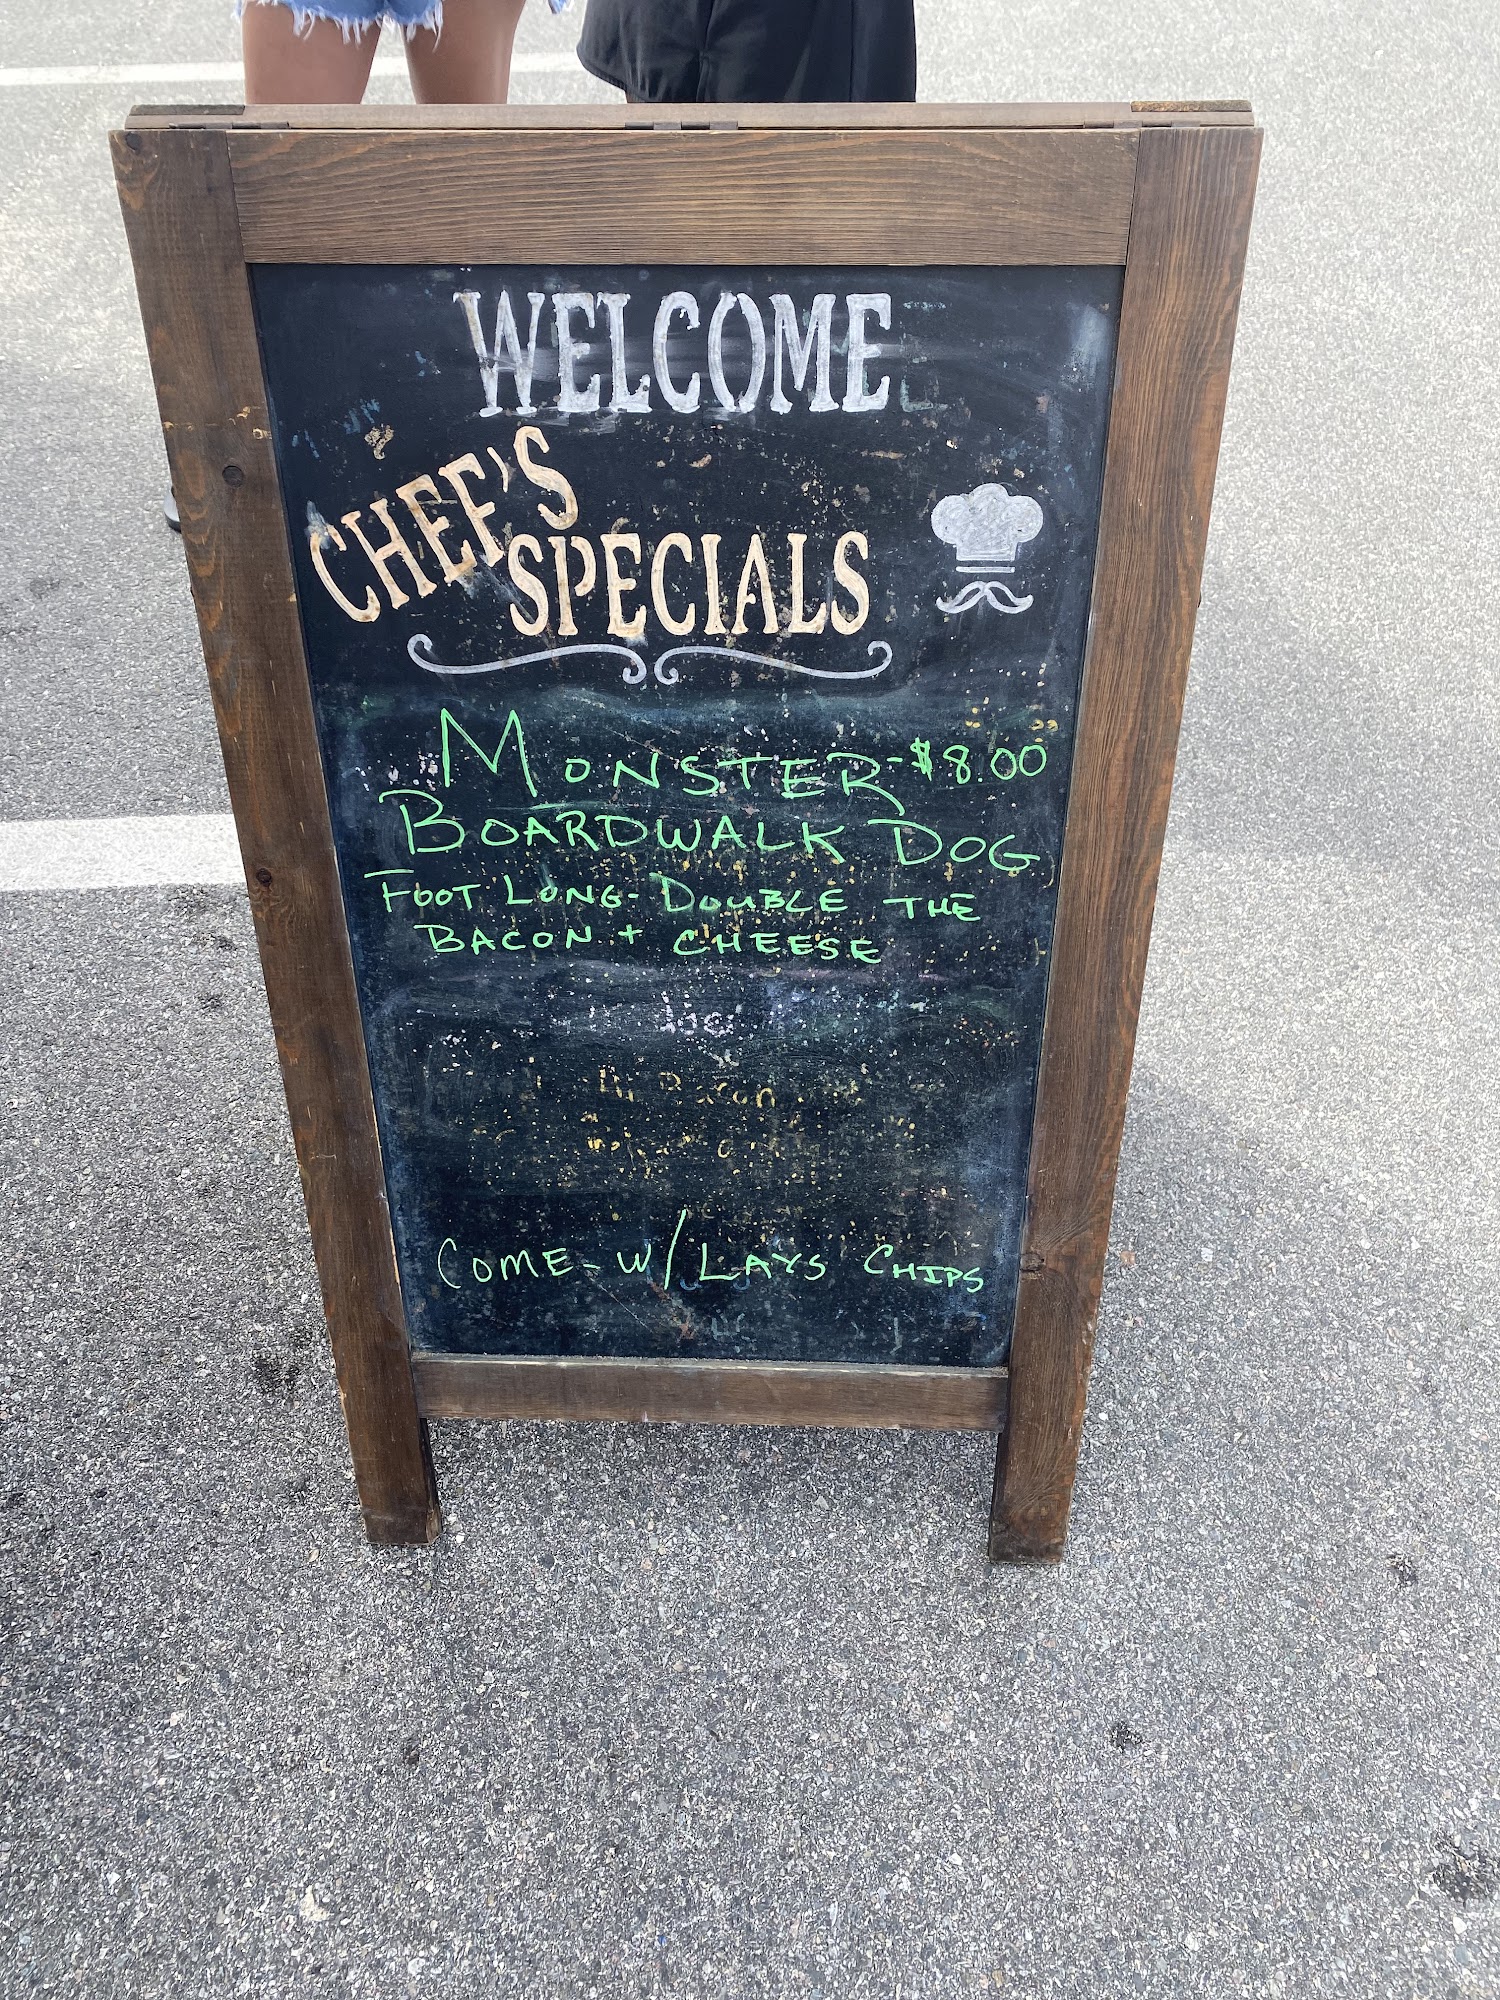 WELCOME
CHEF'S
SPECIALS
MONSTER-$8.00
BOARDWALK DOG
FOOT LONG-DOUBLE THE
BACON + CHEESE
Bacon
COME-W/LAYS CHIPS